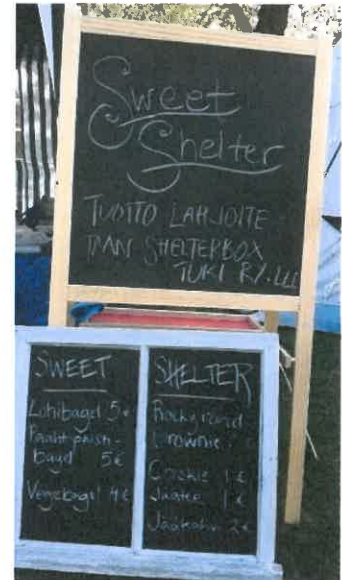 Sweet
Shelter
TUOTTO LAHJOITE
TAAN SHELTERBOX
TUKI RY:LLE
SWEET
Lohibagel 5€
bagel 5€
Vegebagel 4€
SHELTER
Rocky road
brownie
Cookie 1€
Jäätee 1€
Jääkahvi 2€